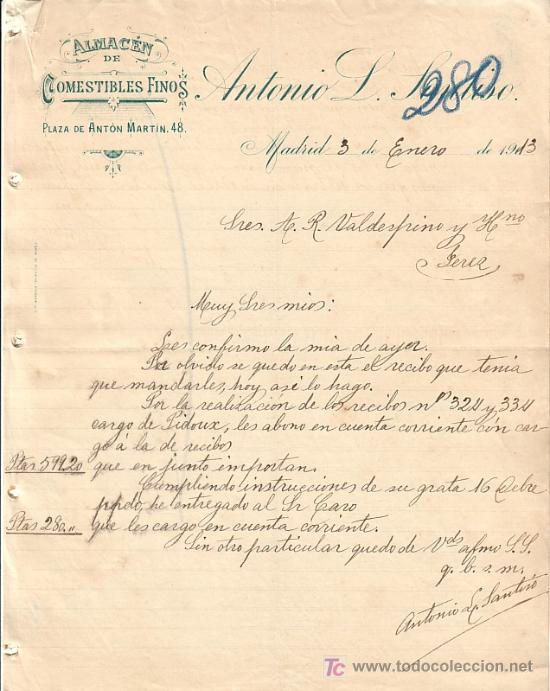 ALMACÉN
DE
COMESTIBLES FINOS
PLAZA DE ANTÓN MARTÍN, 48.
Antonio L. Santiso.
280
Madrid 3 de Enero de 1913
Sres. A. R. Valdespino y Hno
Jerez
Muy Sres mios:
Les confirmo la mia de ayer.
Por olvido se quedo en esta el recibo que tenia
que mandarles, hoy asi lo hago.
Por la realización de los recibos nos 324 y 334
cargo de Pidoux, les abono en cuenta corriente con car
go á la de recibos
Ptas 599.20 que en junto importan.
Cumpliendo instrucciones de su grata 16 Dcbre
ppdo, he entregado al Sr Caro
Ptas 280 " que les cargo en cuenta corriente.
Sin otro particular quedo de Vds afmo S. S.
q. b. s. m.
Antonio L. Santisó
TC todocoleccion.net
www.todocoleccion.net